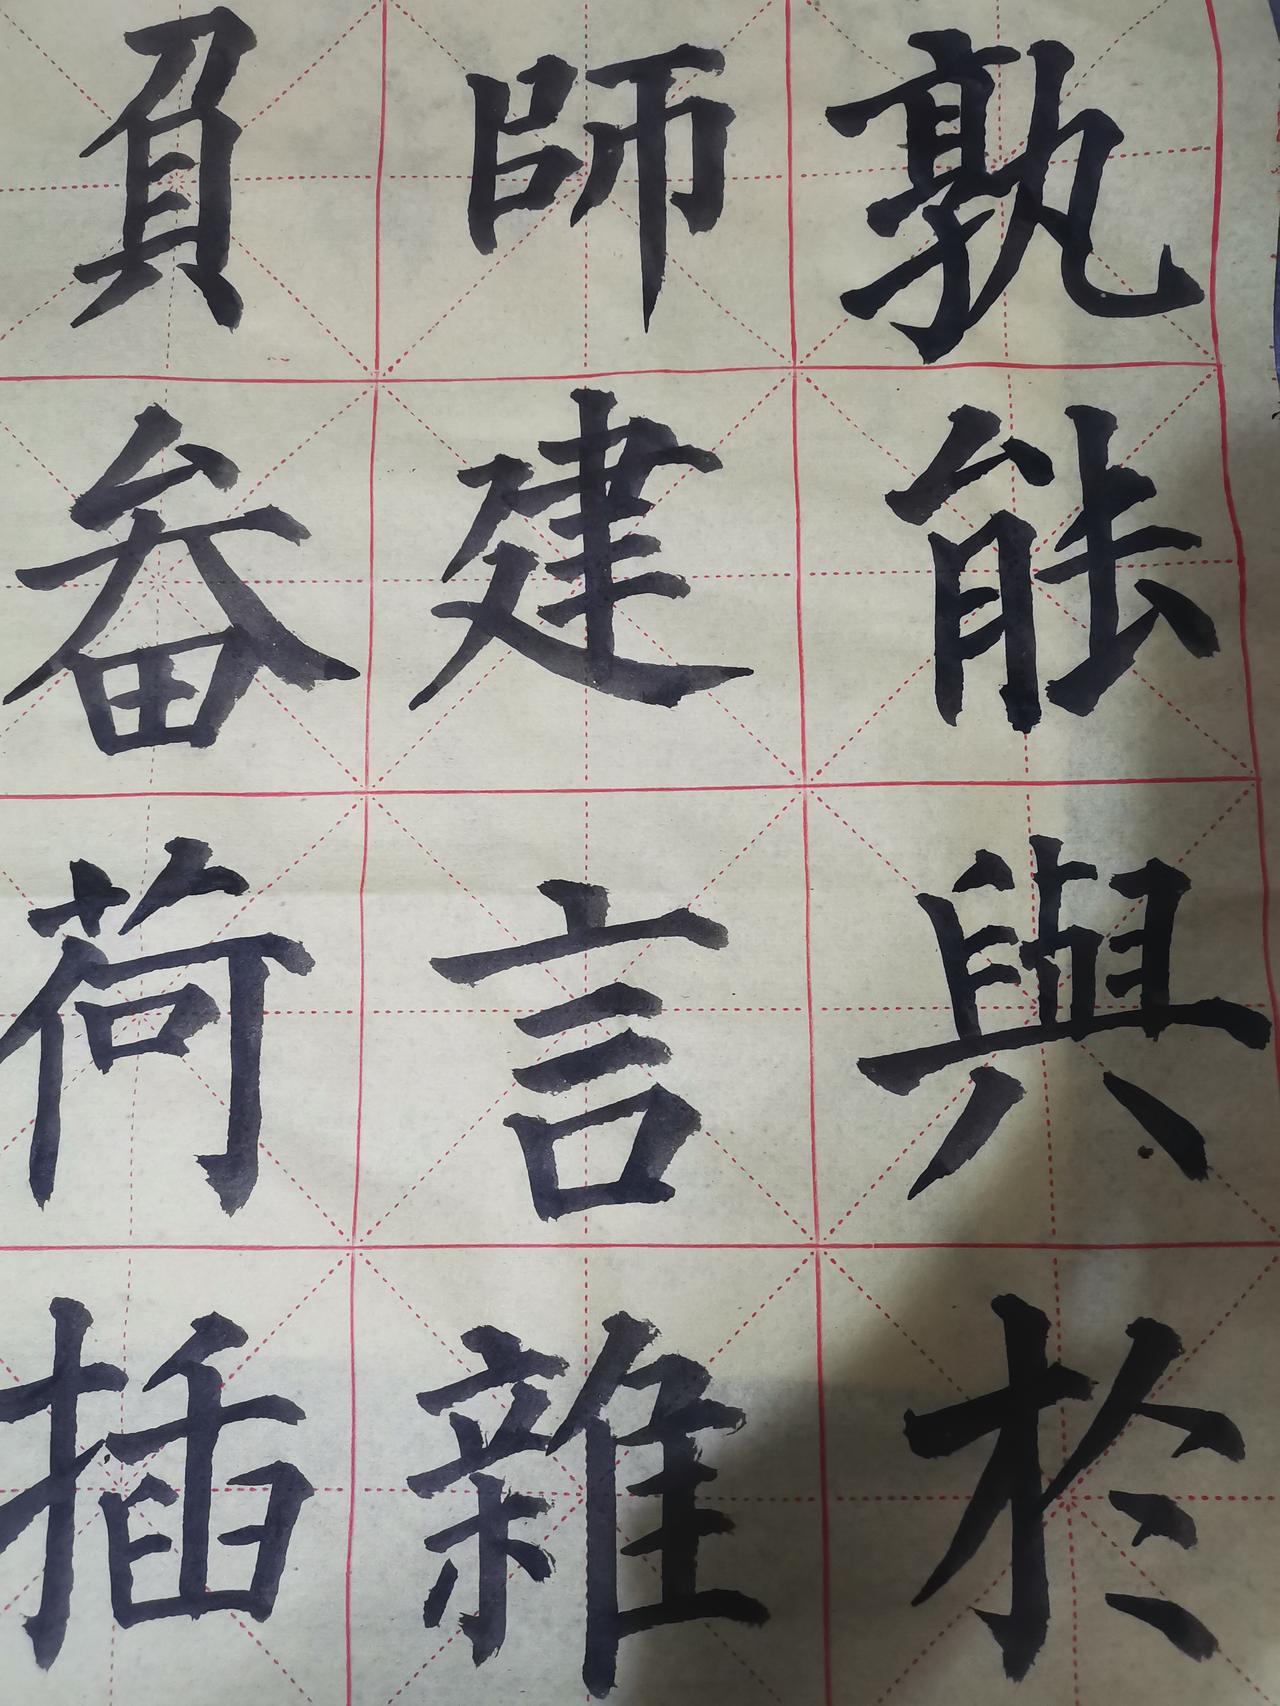 孰能與於
師建言雜
負畚荷插